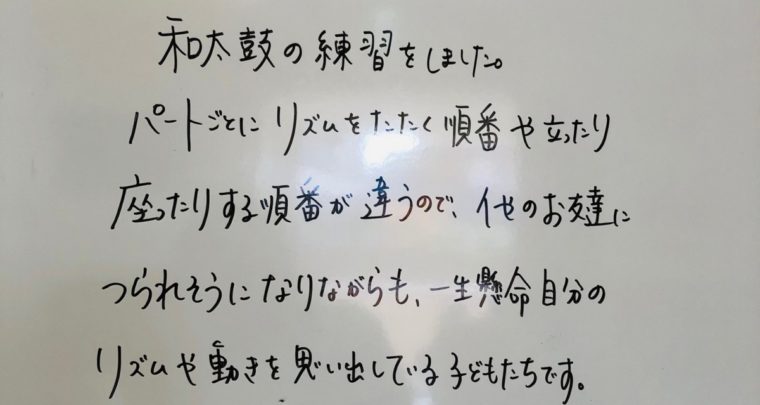 和太鼓の練習をしました。
パートごとにリズムをたたく順番や立ったり
座ったりする順番が違うので、他のお友達に
つられそうになりながらも、一生懸命自分の
リズムや動きを思い出している子どもたちです。